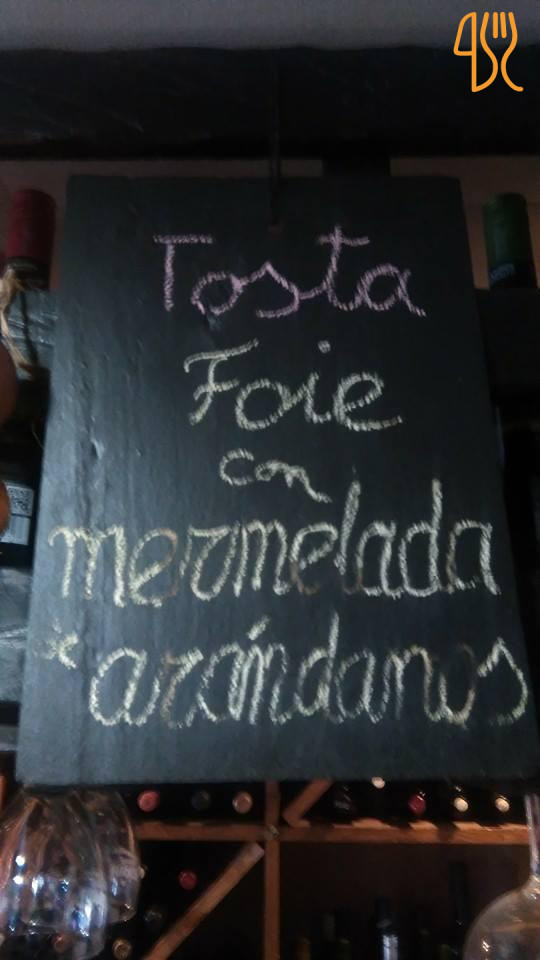 Tosta
Foie
con
mermelada
de arándanos